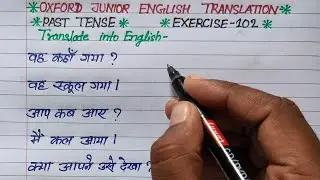 *OXFORD JUNIOR ENGLISH TRANSLATION*
*PAST TENSE* *EXERCISE-102*
Translate into English-
वह कहाँ गया ?
वह स्कूल गया।
आप कब आए ?
मैं कल आया।
क्या आपने उसे देखा ?